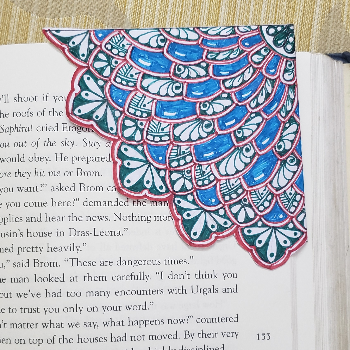 'll shoot if you
he roofs of
Saphira! cried Eragon.
you out of the sky. Stay a
would obey. He prepared
ore they hit me or Brom.
you want?" asked Brom ca
you come here?" demanded the man
pplies and hear the news. Nothing mo
usin's house in Dras-Leona."
med pretty heavily."
u," said Brom. "These are dangerous times."
he man looked at them carefully. "I don't think you
but we've had too many encounters with Urgals and
e to trust you only on your word."
n't matter what we say, what happens now?" countered
en on top of the houses had not moved. By their very
133